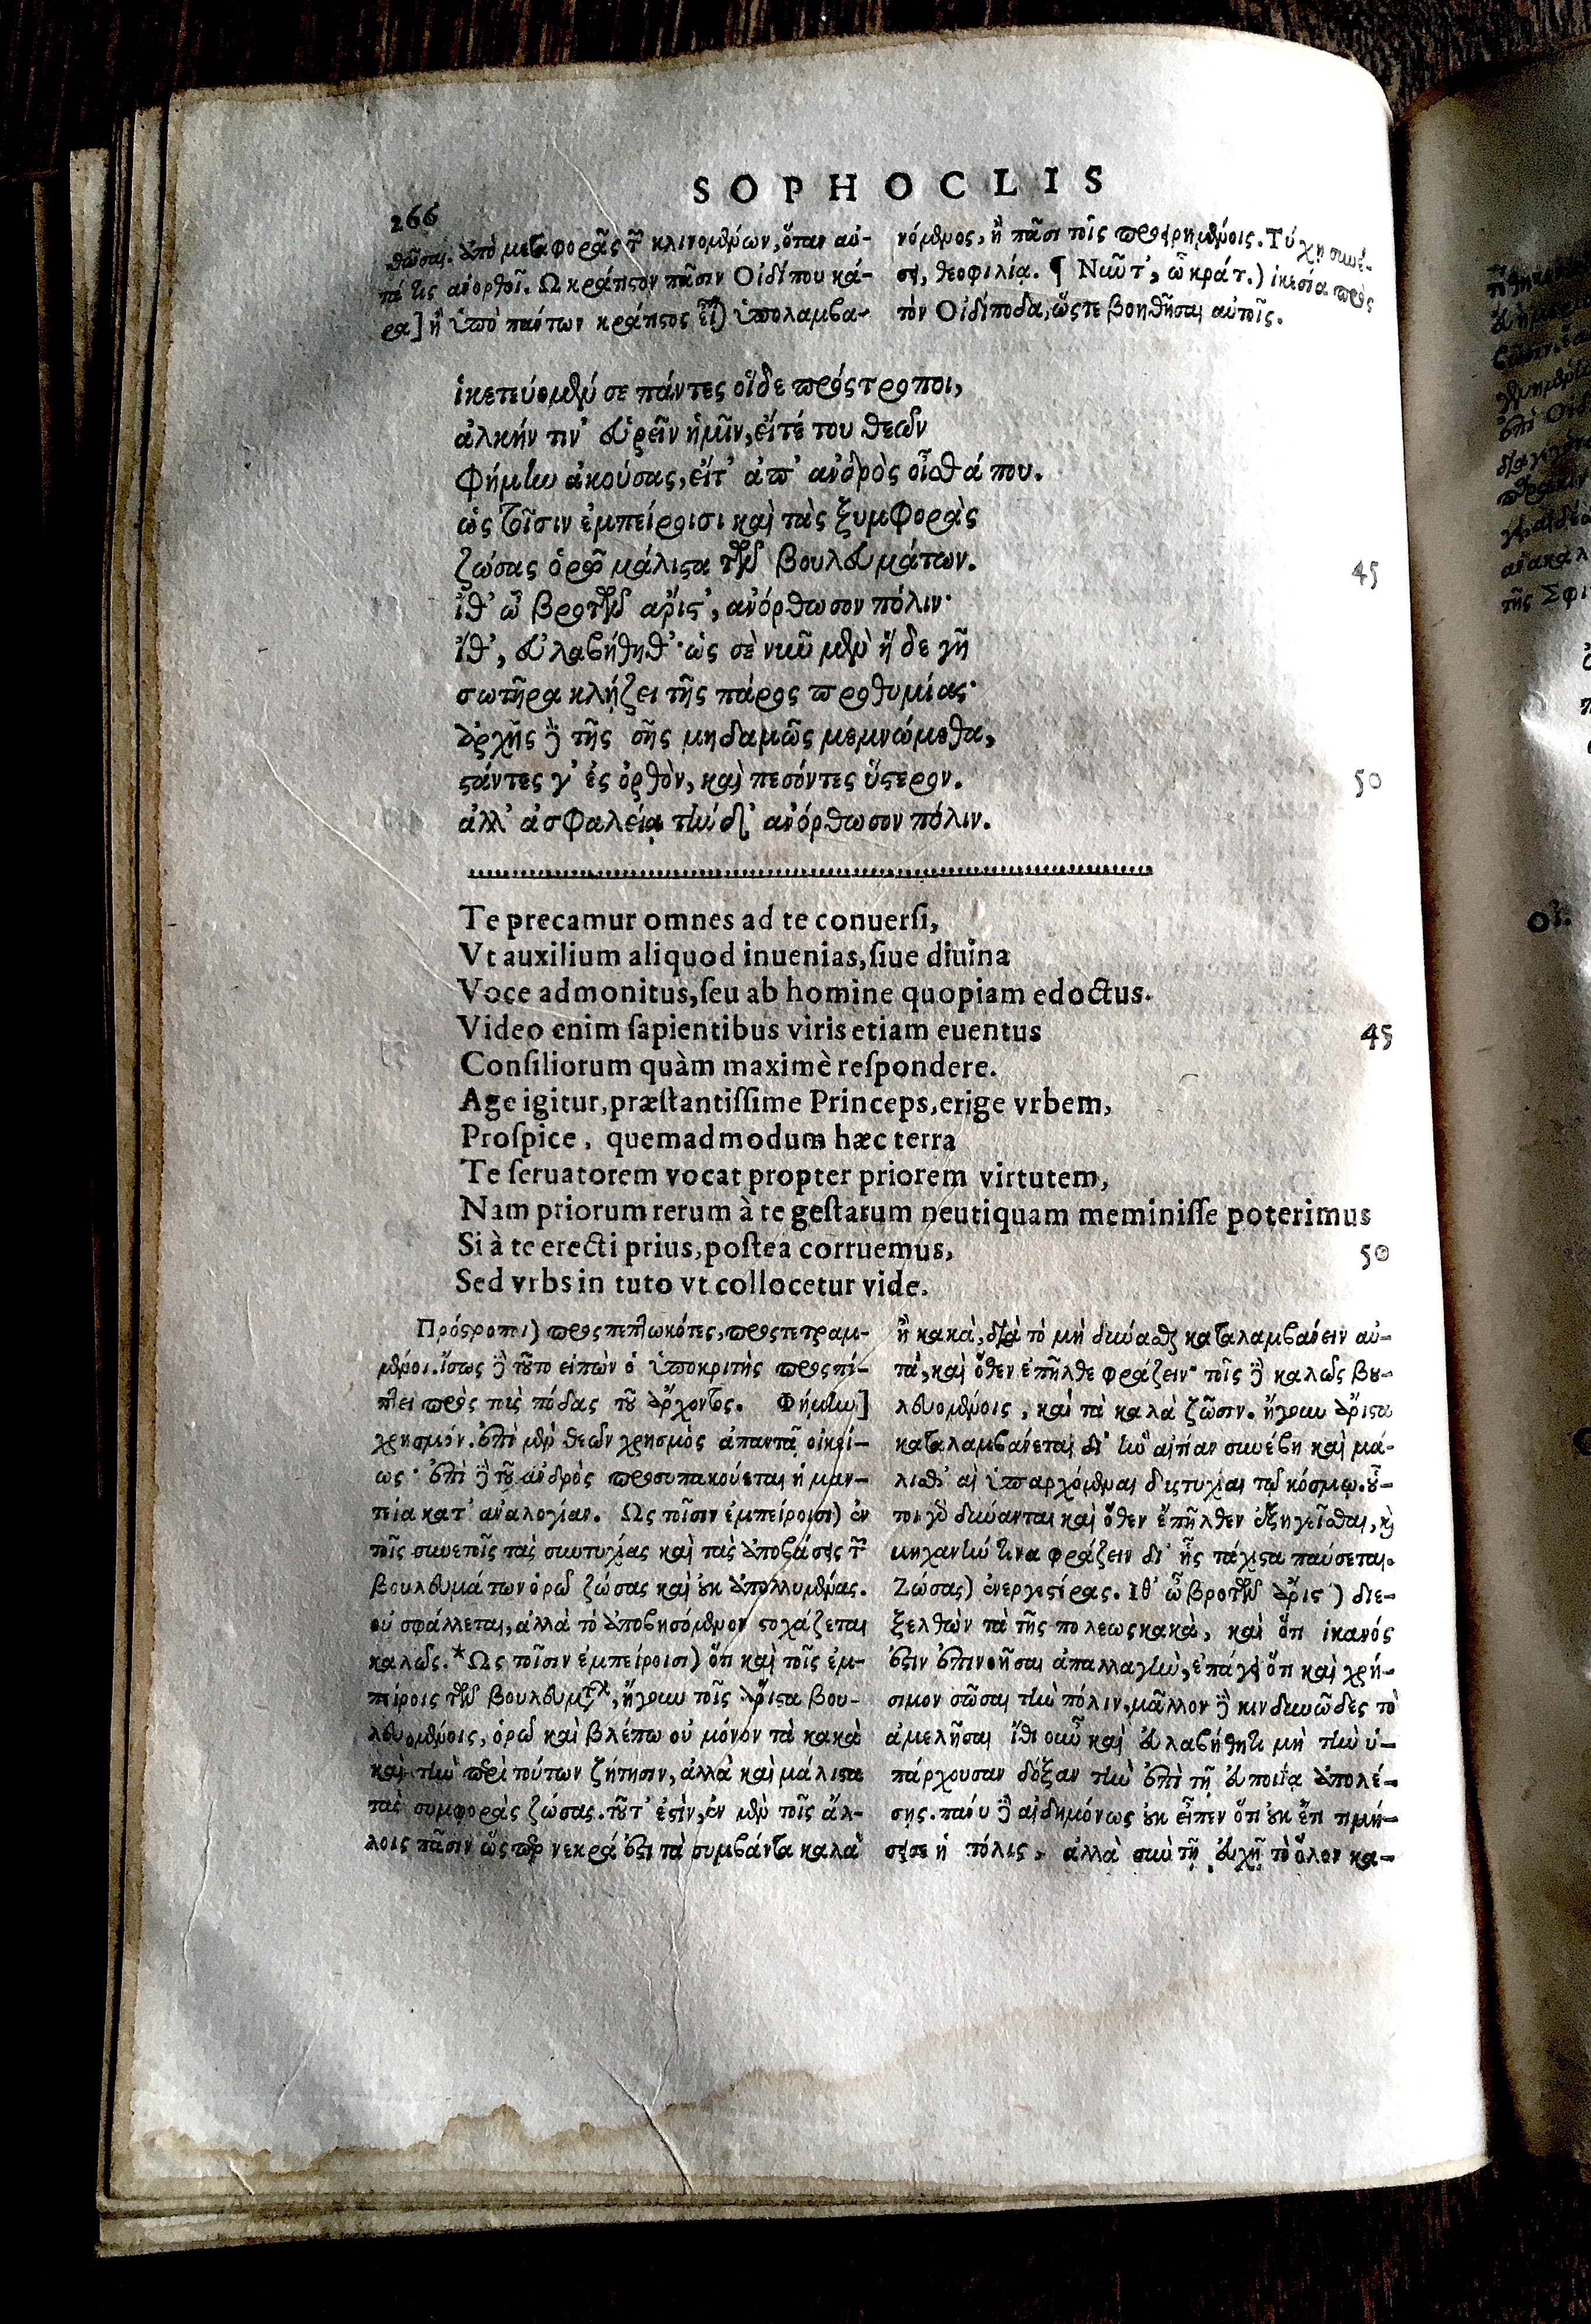 SOPHOCLIS
266
θῶσαι. ἀπὸ μεταφορᾶς τῶν κλινομένων, ὅταν αὐ-
τά τις ἀνορθοῖ. Ω κράτιστον πᾶσιν Οἰδίπου κά-
ρα] ἢ ὑπὸ πάντων κράτιστος εἶναι ὑπολαμβα-
νόμενος, ἢ πᾶσι τοῖς προειρημένοις. Τύχη συνέ-
σει, θεοφιλίᾳ. ¶ Νῦν τ', ὦ κράτ.) ἱκεσία πρὸς
τὸν Οἰδίποδα, ὥστε βοηθῆσαι αὐτοῖς.
ἱκετεύομέν σε πάντες οἵδε πρόςτροποι,
ἀλκήν τιν' εὑρεῖν ἡμῖν, εἴτέ του θεῶν
Φήμην ἀκούσας, εἴτ' ἀπ' ἀνδρὸς οἶσθά που.
ὡς τοῖσιν ἐμπείροισι καὶ τὰς ξυμφορὰς
ζώσας ὁρῶ μάλιστα τῶν βουλευμάτων. 45
ἴθ' ὦ βροτῶν ἄριστ', ἀνόρθωσον πόλιν·
ἴθ', εὐλαβήθηθ'· ὡς σὲ νῦν μὲν ἥ δε γῆ
σωτῆρα κλῄζει τῆς πάρος προθυμίας·
ἀρχῆς δὲ τῆς σῆς μηδαμῶς μεμνώμεθα,
στάντες γ' ἐς ὀρθὸν, καὶ πεσόντες ὕστερον. 50
ἀλλ' ἀσφαλείᾳ τήνδ' ἀνόρθωσον πόλιν.
Te precamur omnes ad te conuerſi,
Vt auxilium aliquod inuenias, ſiue diuina
Voce admonitus, ſeu ab homine quopiam edoctus.
Video enim ſapientibus viris etiam euentus 45
Conſiliorum quàm maximè reſpondere.
Age igitur, præſtantiſſime Princeps, erige vrbem,
Proſpice, quemadmodum hæc terra
Te ſeruatorem vocat propter priorem virtutem,
Nam priorum rerum à te geſtarum neutiquam meminiſſe poterimus
Si à te erecti prius, poſtea corruemus, 50
Sed vrbs in tuto vt collocetur vide.
Πρόστροποι) προςπεπτωκότες, προςτετραμ-
μένοι. ἴσως δὲ τοῦτο εἰπὼν ὁ ὑποκριτὴς προςπί-
πτει πρὸς τοὺς πόδας τοῦ ἄρχοντος. Φήμην]
χρησμόν. ἐπὶ μὲν θεῶν χρησμὸς ἀπαντᾷ οἰκεί-
ως· ἐπὶ δὲ τοῦ ἀνδρὸς προσυπακούεται ἡ μαν-
τεία κατ' ἀναλογίαν. Ως τοῖσιν ἐμπείροισι) ἐν
τοῖς συνετοῖς τὰς συντυχίας καὶ τὰς ἀποβάσεις τῶν
βουλευμάτων ὁρῶ ζώσας καὶ οὐκ ἀπολλυμένας.
οὐ σφάλλεται, ἀλλὰ τὸ ἀποβησόμενον στοχάζεται
καλῶς. * Ως τοῖσιν ἐμπείροισι) ὅτι καὶ τοῖς ἐμ-
πείροις τῶν βουλευμάτων, ἤγουν τοῖς ἄριστα βου-
λευομένοις, ὁρῶ καὶ βλέπω οὐ μόνον τὰ κακὰ
καὶ τὴν περὶ τούτων ζήτησιν, ἀλλὰ καὶ μάλιστα
τὰς συμφορὰς ζώσας. τοῦτ' ἐστὶν, ἐν μὲν τοῖς ἄλ-
λοις πᾶσιν ὥςπερ νεκρά ἐστι τὰ συμβάντα καλὰ
ἢ κακὰ, διὰ τὸ μὴ δύνασθαι καταλαμβάνειν αὐ-
τὰ, καὶ ὅθεν ἐπῆλθε φράζειν· τοῖς δὲ καλῶς βου-
λευομένοις, καὶ τὰ καλὰ ζῶσιν. ἤγουν ἄριστα
καταλαμβάνεται δι' ἣν αἰτίαν συνέβη καὶ μά-
λισθ' αἱ ὑπαρχόμεναι δυςτυχίαι τῷ κόσμῳ. οὗ-
τοι γὰρ δύνανται καὶ ὅθεν ἐπῆλθεν ἐξηγεῖσθαι, καὶ
μηχανήν τινα φράζειν δι' ἧς τάχιστα παύσεται.
Ζώσας) ἐνεργεστέρας. Ιθ' ὦ βροτῶν ἄριστ') διε-
ξελθὼν τὰ τῆς πόλεως κακὰ, καὶ ὅτι ἱκανός
ἐστιν ἐπινοῆσαι ἀπαλλαγὴν, ἐπάγει ὅτι καὶ χρή-
σιμον σῶσαι τὴν πόλιν, μᾶλλον δὲ κινδυνῶδες τὸ
ἀμελῆσαι ἴθι οὖν καὶ εὐλαβήθητι μὴ τὴν ὑ-
πάρχουσαν δόξαν τὴν ἐπὶ τῇ εὐποιΐα ἀπολέ-
σῃς. πάνυ δὲ αἰδημόνως οὐκ εἶπεν ὅτι οὐκ ἔτι τιμή-
σει σε ἡ πόλις, ἀλλὰ σὺν τῇ εὐχῇ τὸ ὅλον κα-